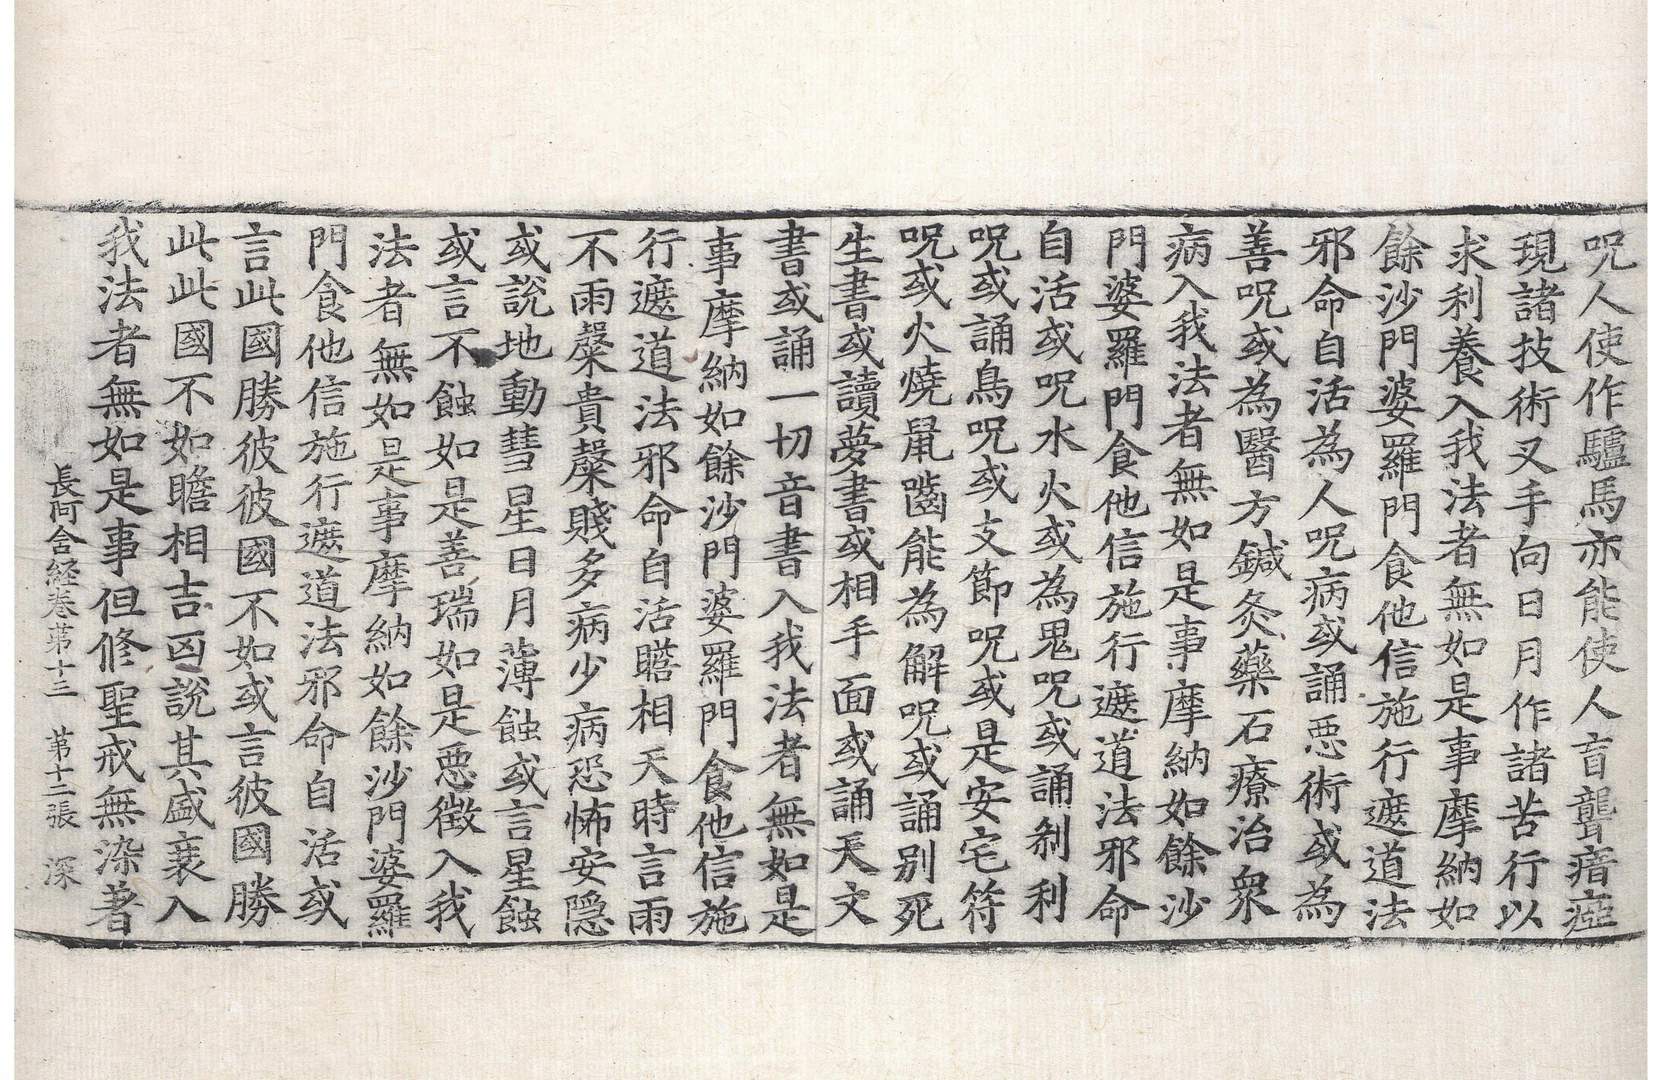 呪人使作驢馬亦能使人盲聾瘖瘂
現諸技術叉手向日月作諸苦行以
求利養入我法者無如是事摩納如
餘沙門婆羅門食他信施行遮道法
邪命自活為人呪病或誦惡術或為
善呪或為醫方鍼灸藥石療治衆
病入我法者無如是事摩納如餘沙
門婆羅門食他信施行遮道法邪命
自活或呪水火或為鬼呪或誦刹利
呪或誦鳥呪或支節呪或是安宅符
呪或火燒鼠嚙能為解呪或誦別死
生書或讀夢書或相手面或誦天文
書或誦一切音書入我法者無如是
事摩納如餘沙門婆羅門食他信施
行遮道法邪命自活瞻相天時言雨
不雨糳貴糳賤多病少病恐怖安隱
或說地動彗星日月薄蝕或言星蝕
或言不蝕如是善瑞如是惡徵入我
法者無如是事摩納如餘沙門婆羅
門食他信施行遮道法邪命自活或
言此國勝彼彼國不如或言彼國勝
此此國不如瞻相吉凶說其盛衰入
我法者無如是事但修聖戒無染著
長阿含経巻苐十三 苐十二張 深